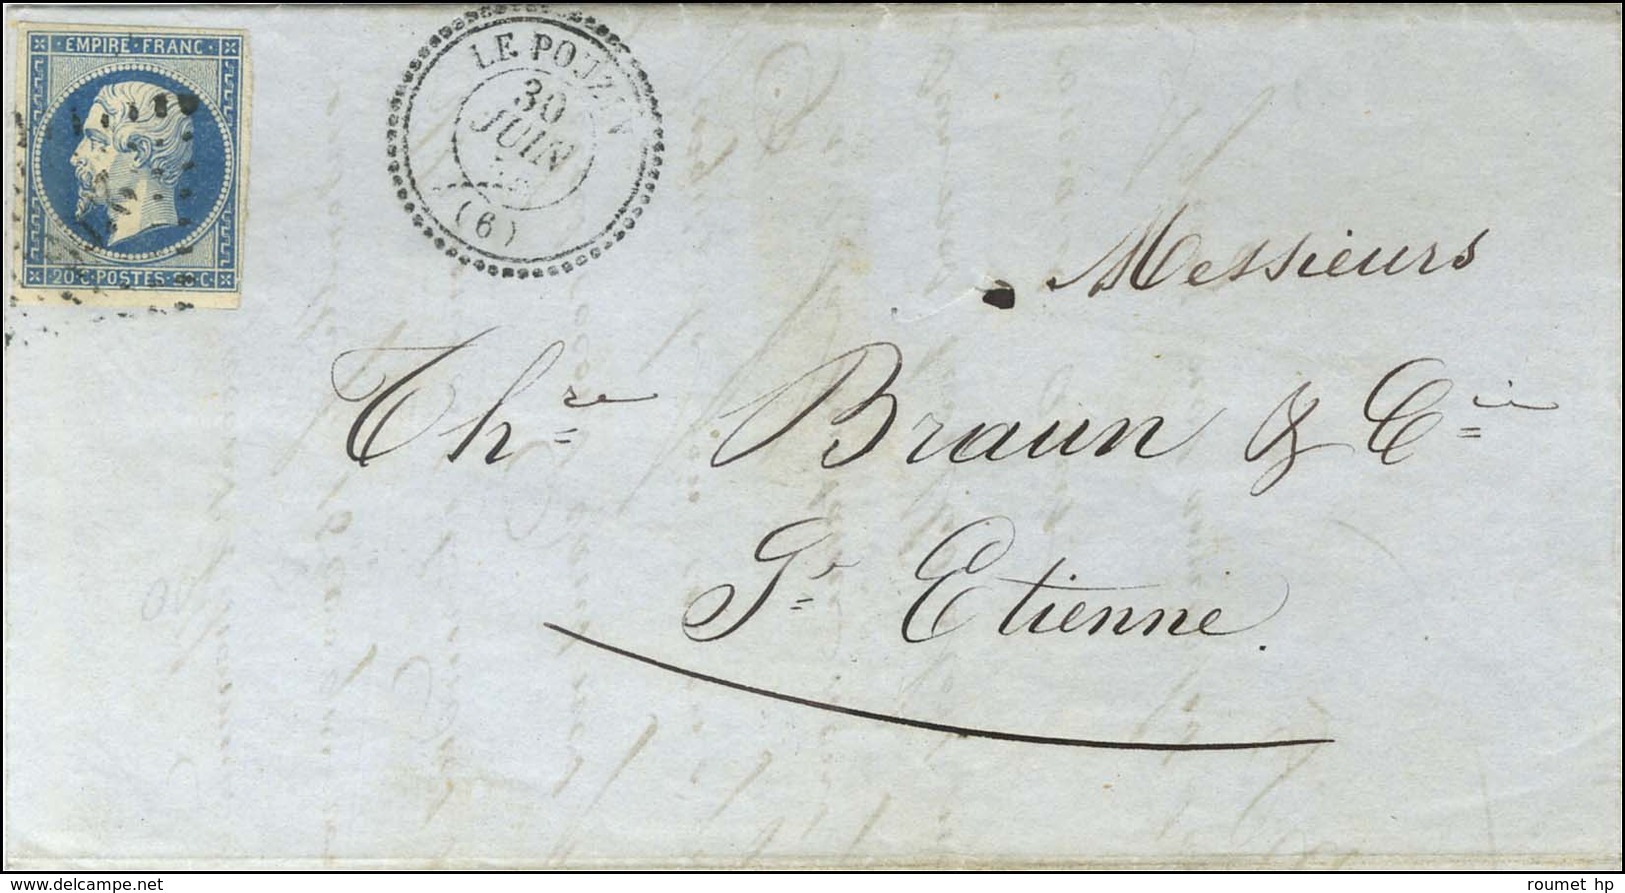 EMPIRE · FRANC ·
20 C POSTES 20 C.
LE POUZIN
30
JUIN
(6)
Messieurs
Thre Braun & Cie
St Etienne.
www.delcampe.net
roumet hp